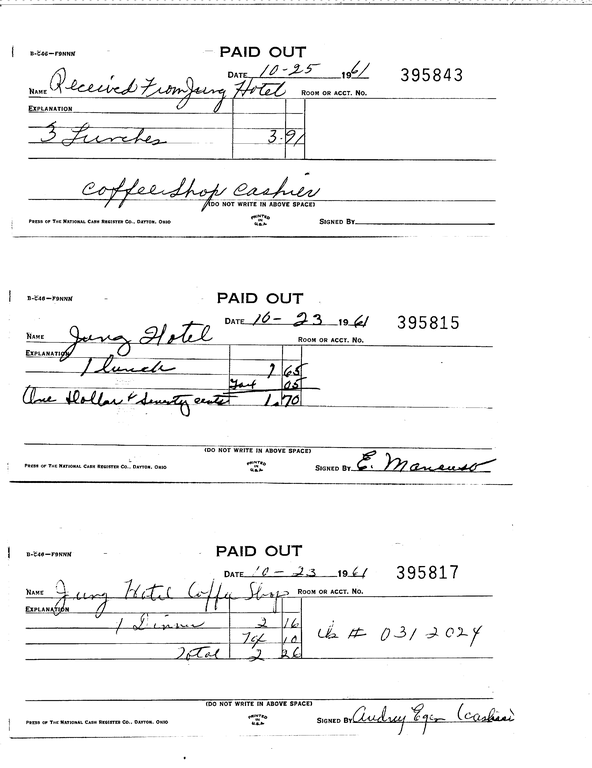 B-C46—F9NNN
PAID OUT
DATE 10-25 1961 395843
NAME Received From Jung Hotel ROOM OR ACCT. No.
EXPLANATION
3 Lunches 3.91
Coffee Shop Cashier
(DO NOT WRITE IN ABOVE SPACE)
PRESS OF THE NATIONAL CASH REGISTER CO., DAYTON, OHIO PRINTED IN U.S.A. SIGNED BY
B-C46—F9NNN
PAID OUT
DATE 10-23 1961 395815
NAME Jung Hotel ROOM OR ACCT. No.
EXPLANATION
1 lunch 1 65
Tax 05
One Dollar & Seventy cents 1.70
(DO NOT WRITE IN ABOVE SPACE)
PRESS OF THE NATIONAL CASH REGISTER CO., DAYTON, OHIO PRINTED IN U.S.A. SIGNED BY E. Mancuso
B-C46—F9NNN
PAID OUT
DATE 10-23 1961 395817
NAME Jung Hotel Coffy Shop ROOM OR ACCT. No.
EXPLANATION
1 Dinner 2 16
Tax 10 # 0312024
Total 2 26
(DO NOT WRITE IN ABOVE SPACE)
PRESS OF THE NATIONAL CASH REGISTER CO., DAYTON, OHIO PRINTED IN U.S.A. SIGNED BY Audrey (cashier)